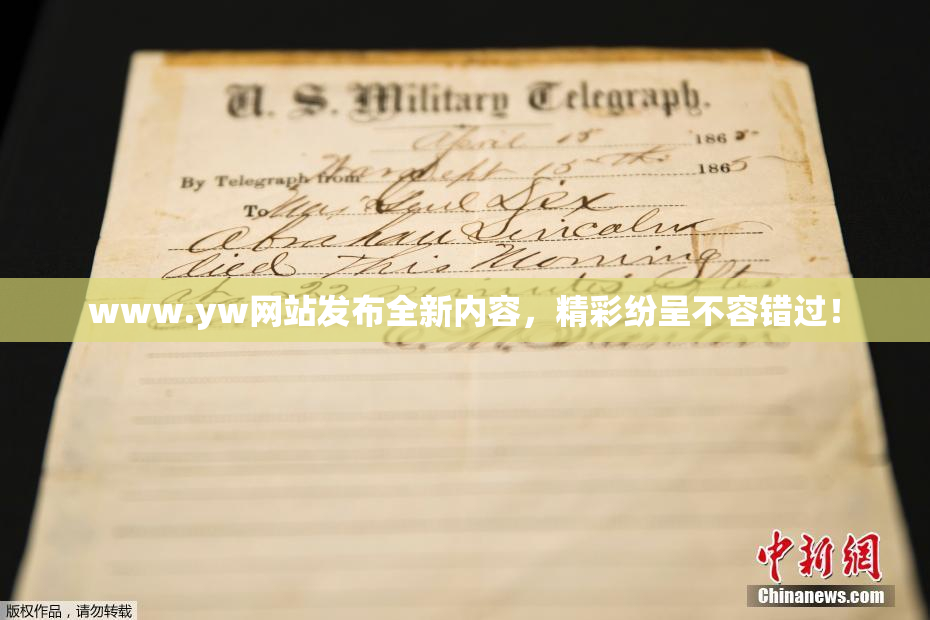 U. S. Military Telegraph.
April 15 1865
By Telegraph from War Dept 15th 1865
To Maj Genl Dix
Abraham Lincoln
died This Morning
at 22 minutes after
www.yw网站发布全新内容，精彩纷呈不容错过！
E. M. Stanton
中新网
Chinanews.com
版权作品，请勿转载